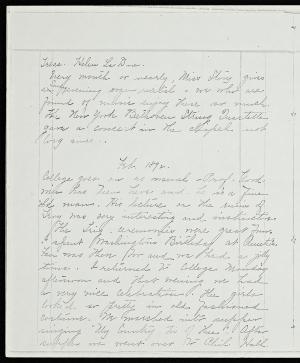 Treas. Helen La Due.
Every month or nearly, Miss Ivy gives
an evening and we who are
fond of music enjoy these so much.
The New York Beethoven String Quartette
gave a concert in the chapel not
long ago.
Feb. 1892.
College goes on as usual. Prof. Good-
has been here and he is a fine
man. His lecture on the ruins of
was very interesting and instructive.
The Trig. ceremonies were great fun.
I spent Washington's Birthday at Aunt
was there too and we had a jolly
time. I returned to College Monday
afternoon and that evening we had
a very nice celebration. The girls
looked so pretty in old fashioned
costume. We marched into supper
singing "My Country 'tis of thee". After
supper we went over to Phil. Hall